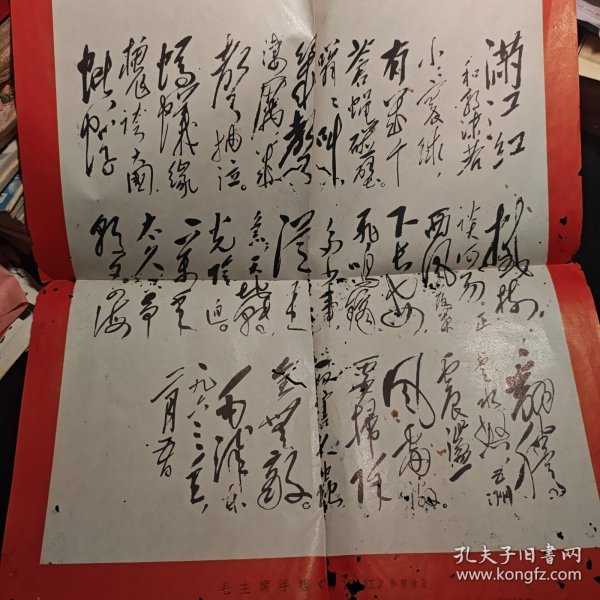 满江红
和郭沫若
小小寰球，
有几个
苍蝇碰壁。
嗡嗡叫，
几声
凄厉，几
声抽泣。
蚂蚁缘
槐夸大国，
蚍蜉
撼树
谈何易。正
西风落叶
下长安，
飞鸣镝。
多少事，
从来
急。天地转，
光阴迫。
一万年
太久，只争
朝夕。四海
翻腾
云水怒，五洲
震荡
风雷激。
要扫除
一切害人虫，
全无敌。
毛泽东
一九六三年
二月五日
毛主席手书《满江红》
孔夫子旧书网
www.kongfz.com